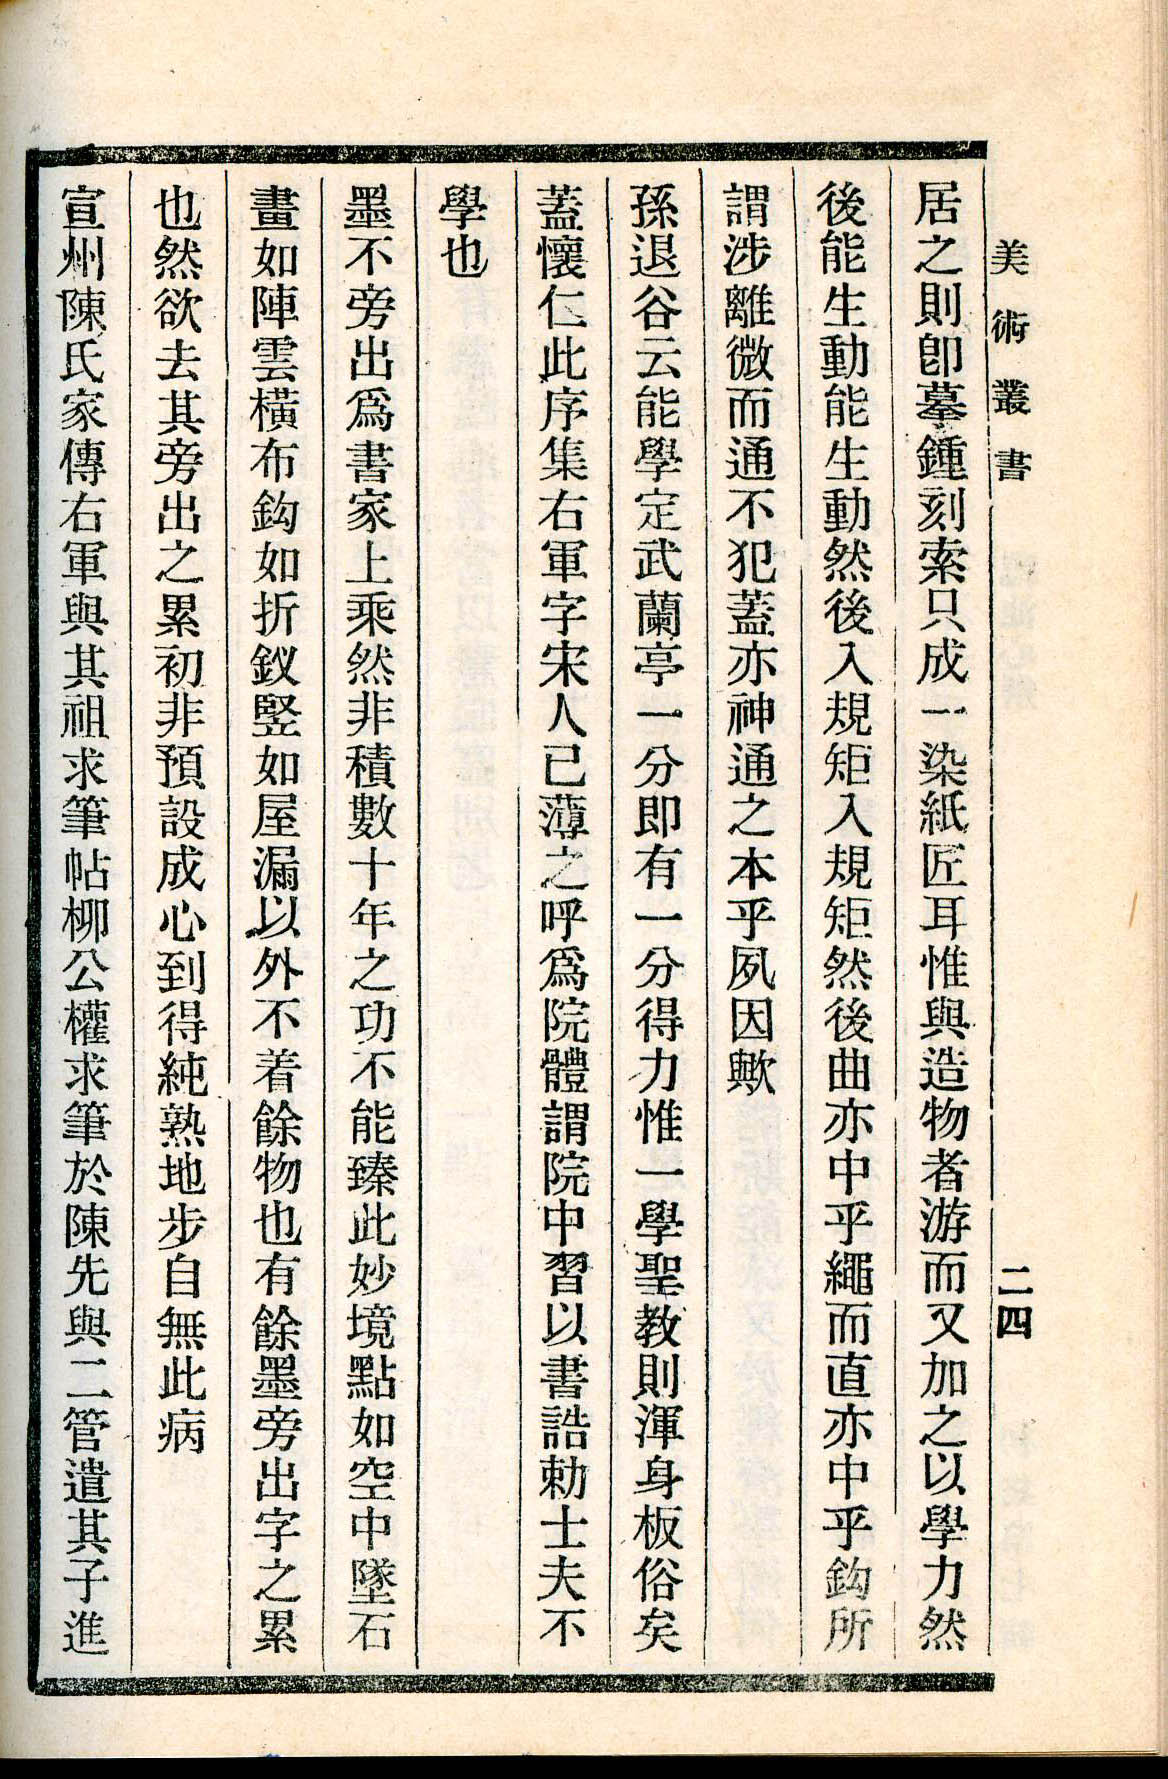 美術叢書 二四
居之則卽摹鍾刻索只成一染紙匠耳惟與造物者游而又加之以學力然
後能生動能生動然後入規矩入規矩然後曲亦中乎繩而直亦中乎鈎所
謂涉離微而通不犯蓋亦神通之本乎夙因歟
孫退谷云能學定武蘭亭一分即有一分得力惟一學聖教則渾身板俗矣
蓋懷仁此序集右軍字宋人已薄之呼爲院體謂院中習以書誥勅士夫不
學也
墨不旁出爲書家上乘然非積數十年之功不能臻此妙境點如空中墜石
畫如陣雲橫布鈎如折釵竪如屋漏以外不着餘物也有餘墨旁出字之累
也然欲去其旁出之累初非預設成心到得純熟地步自無此病
宣州陳氏家傳右軍與其祖求筆帖柳公權求筆於陳先與二管遣其子進